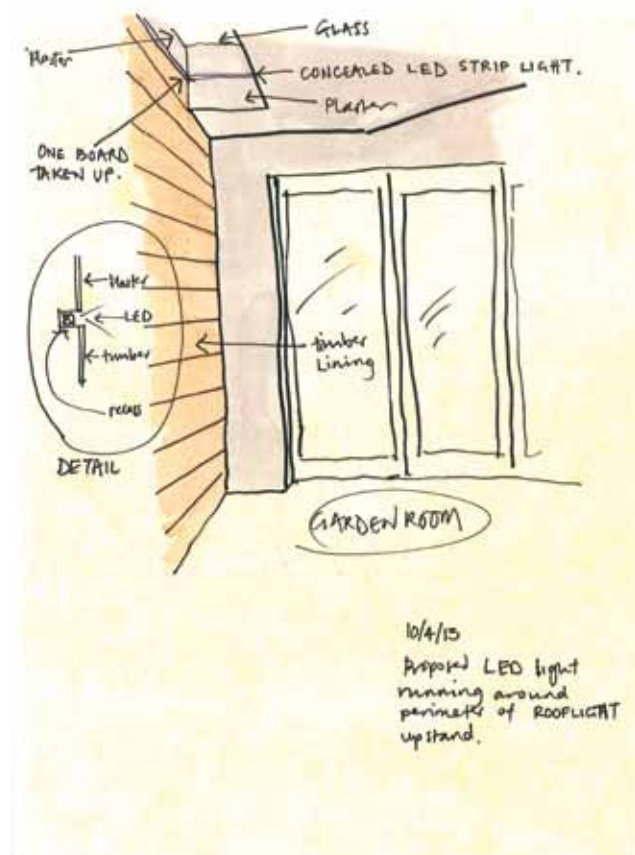 GLASS
Plaster
CONCEALED LED STRIP LIGHT.
Plaster
ONE BOARD
TAKEN UP.
Plaster
LED
timber
recess
DETAIL
timber
Lining
GARDEN ROOM
10/4/13
Proposed LED light
running around
perimeter of ROOFLIGHT
upstand.